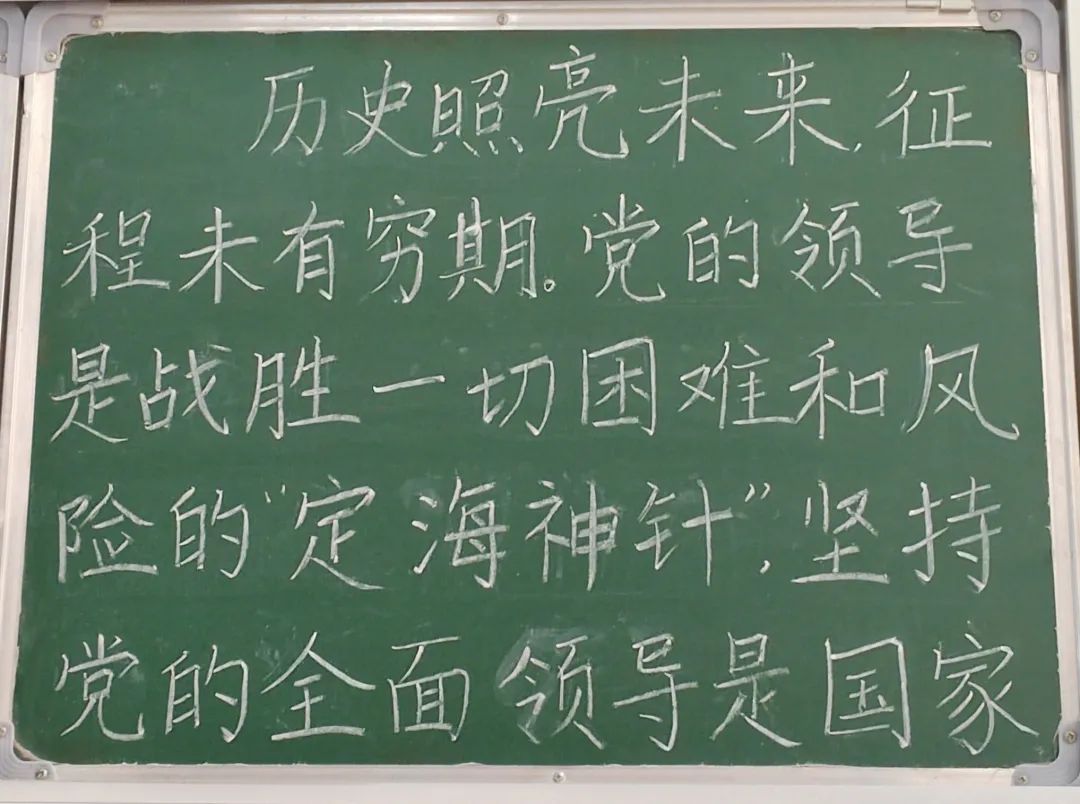 历史照亮未来,征
程未有穷期。党的领导
是战胜一切困难和风
险的“定海神针”,坚持
党的全面领导是国家